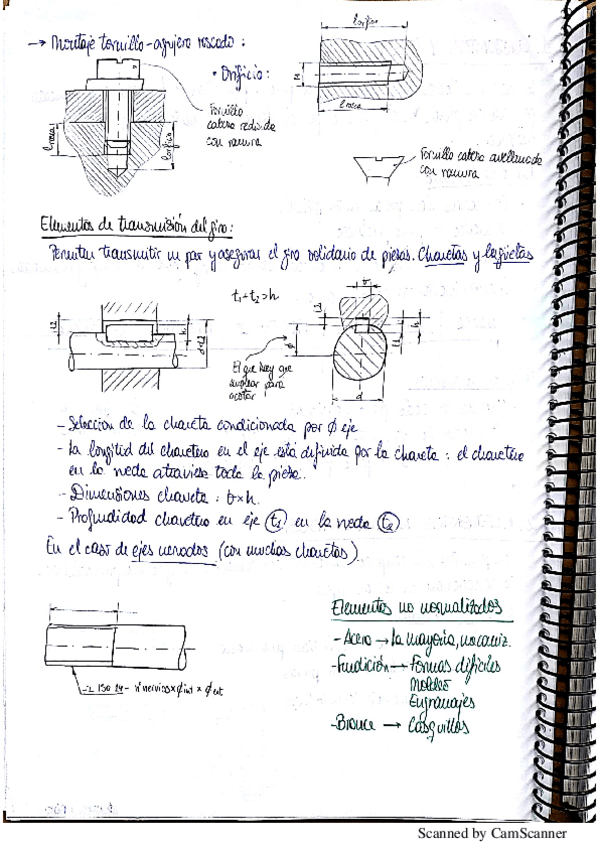 → Montaje tornillo-agujero roscado:
• Orificio:
lorificio
M
lrosca
Tornillo
cabeza redonda
con ranura
lrosca
lorificio
Tornillo cabeza avellanada
con ranura
Elementos de transmisión del giro:
Permiten transmitir un par y asegurar el giro solidario de piezas. Chavetas y lengüetas
t1+t2=h
b
t2
h
d+t2
t2
h
t1
d
El que hay que
emplear para
acotar
- Selección de la chaveta condicionada por ϕ eje
- La longitud del chavetero en el eje está definida por la chaveta: el chavetero
en la rueda atraviesa toda la pieza.
- Dimensiones chaveta: b×h.
- Profundidad chavetero en eje t1 en la rueda t2
En el caso de ejes nervados (con muchas chavetas)
ISO 14 - nº nervios × ϕ int × ϕ ext
Elementos no normalizados
- Acero → La mayoría, mecaniz.
- Fundición → Formas difíciles
Moldes
Engranajes
- Bronce → Casquillos
Scanned by CamScanner